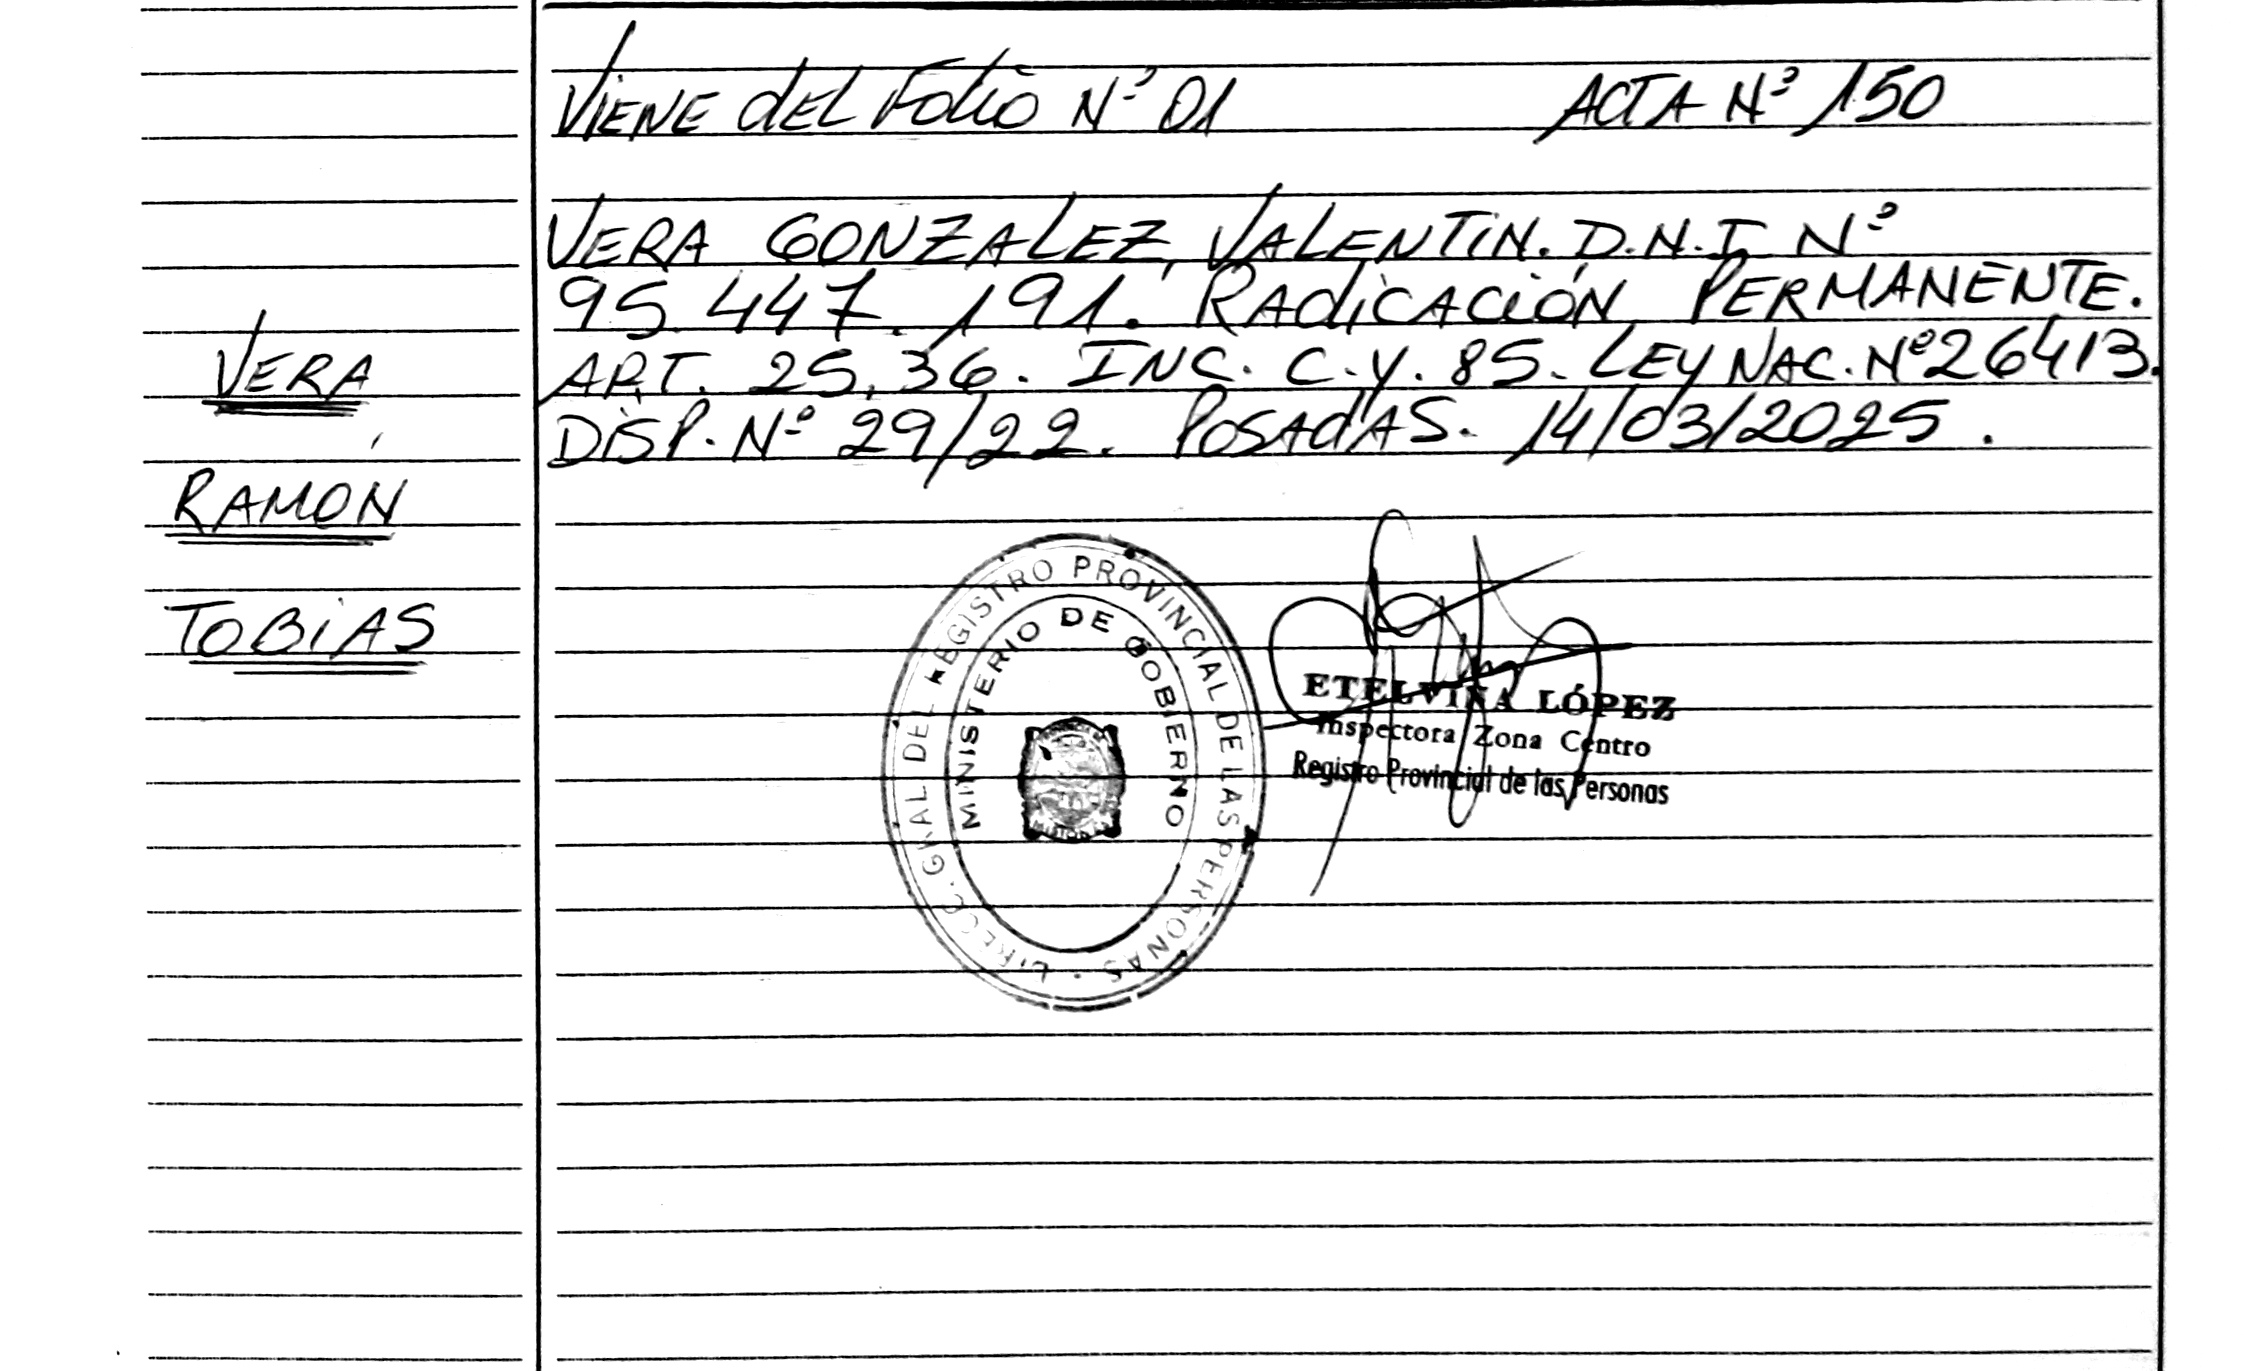 Viene del Folio Nº 01 ACTA Nº 150
VERA GONZALEZ, VALENTIN. D.N.I. Nº
95.447.191. RADICACIÓN PERMANENTE.
ART. 25, 36. INC. C. Y. 85. LEY NAC. Nº 26413.
DISP. Nº 29/22. POSADAS. 14/03/2025.
VERA
RAMÓN
TOBIAS
DIRECC. GRAL DEL REGISTRO PROVINCIAL DE LAS PERSONAS
MINISTERIO DE GOBIERNO
ETELVINA LÓPEZ
Inspectora Zona Centro
Registro Provincial de las Personas